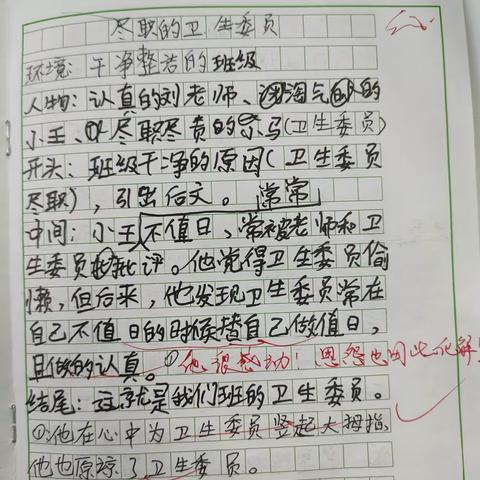 尽职的卫生委员
环境:干净整洁的班级
人物:认真的刘老师、淘气的的
小王、尽职尽责的小马(卫生委员)
开头:班级干净的原因(卫生委员
尽职),引出后文。 常常
中间:小王不值日,常被老师和卫
生委员批评。他觉得卫生委员偷
懒,但后来,他发现卫生委员常在
自己不值日的时候替自己做值日,
且做的认真。①他很感动!恩怨也因此化解!
结尾:这就是我们班的卫生委员。
①:他在心中为卫生委员竖起大拇指,
他也原谅了卫生委员。